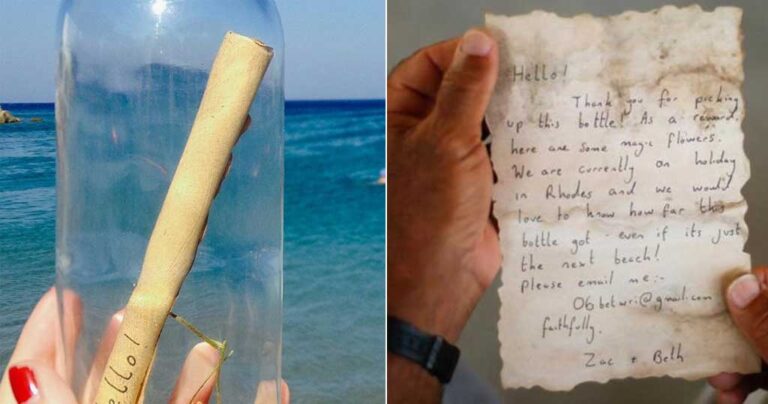 ello!
Hello!
Thank you for picking
up this bottle! As a reward,
here are some magic flowers.
We are currently on holiday
in Rhodes and we would
love to know how far this
bottle got - even if its just
the next beach!
Please email me:-
06betwri@gmail.com
faithfully.
Zac + Beth